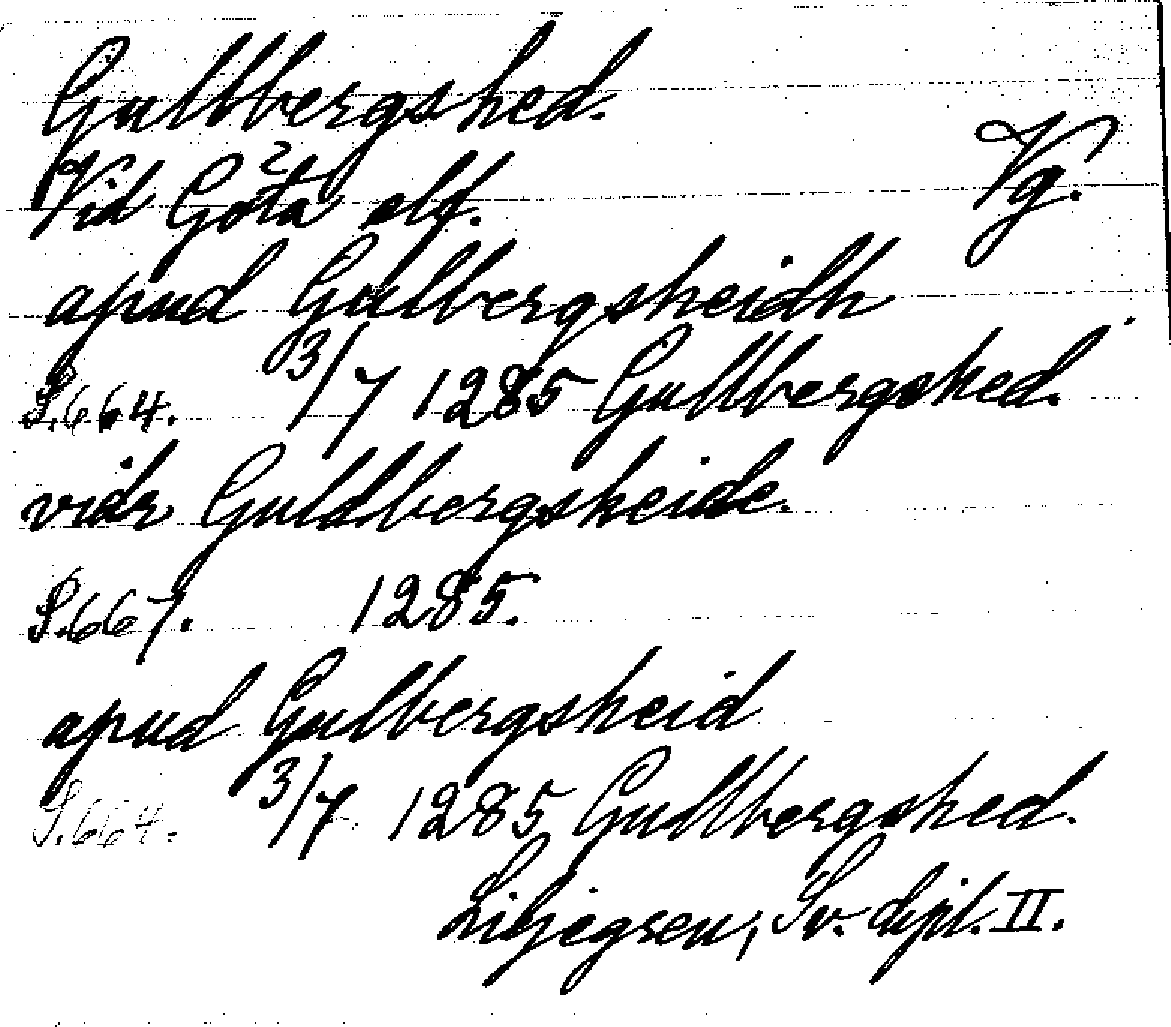 Gullbergshed.
Vg.
Vid Göta elf.
apud Gulbergsheidh
S. 664. 3/7 1285 Gullbergshed.
vidr Guldbergsheide.
S. 667. 1285.
apud Gulbergsheid
S. 664. 3/7 1285 Gullbergshed.
Liljegren, Sv. dipl. II.